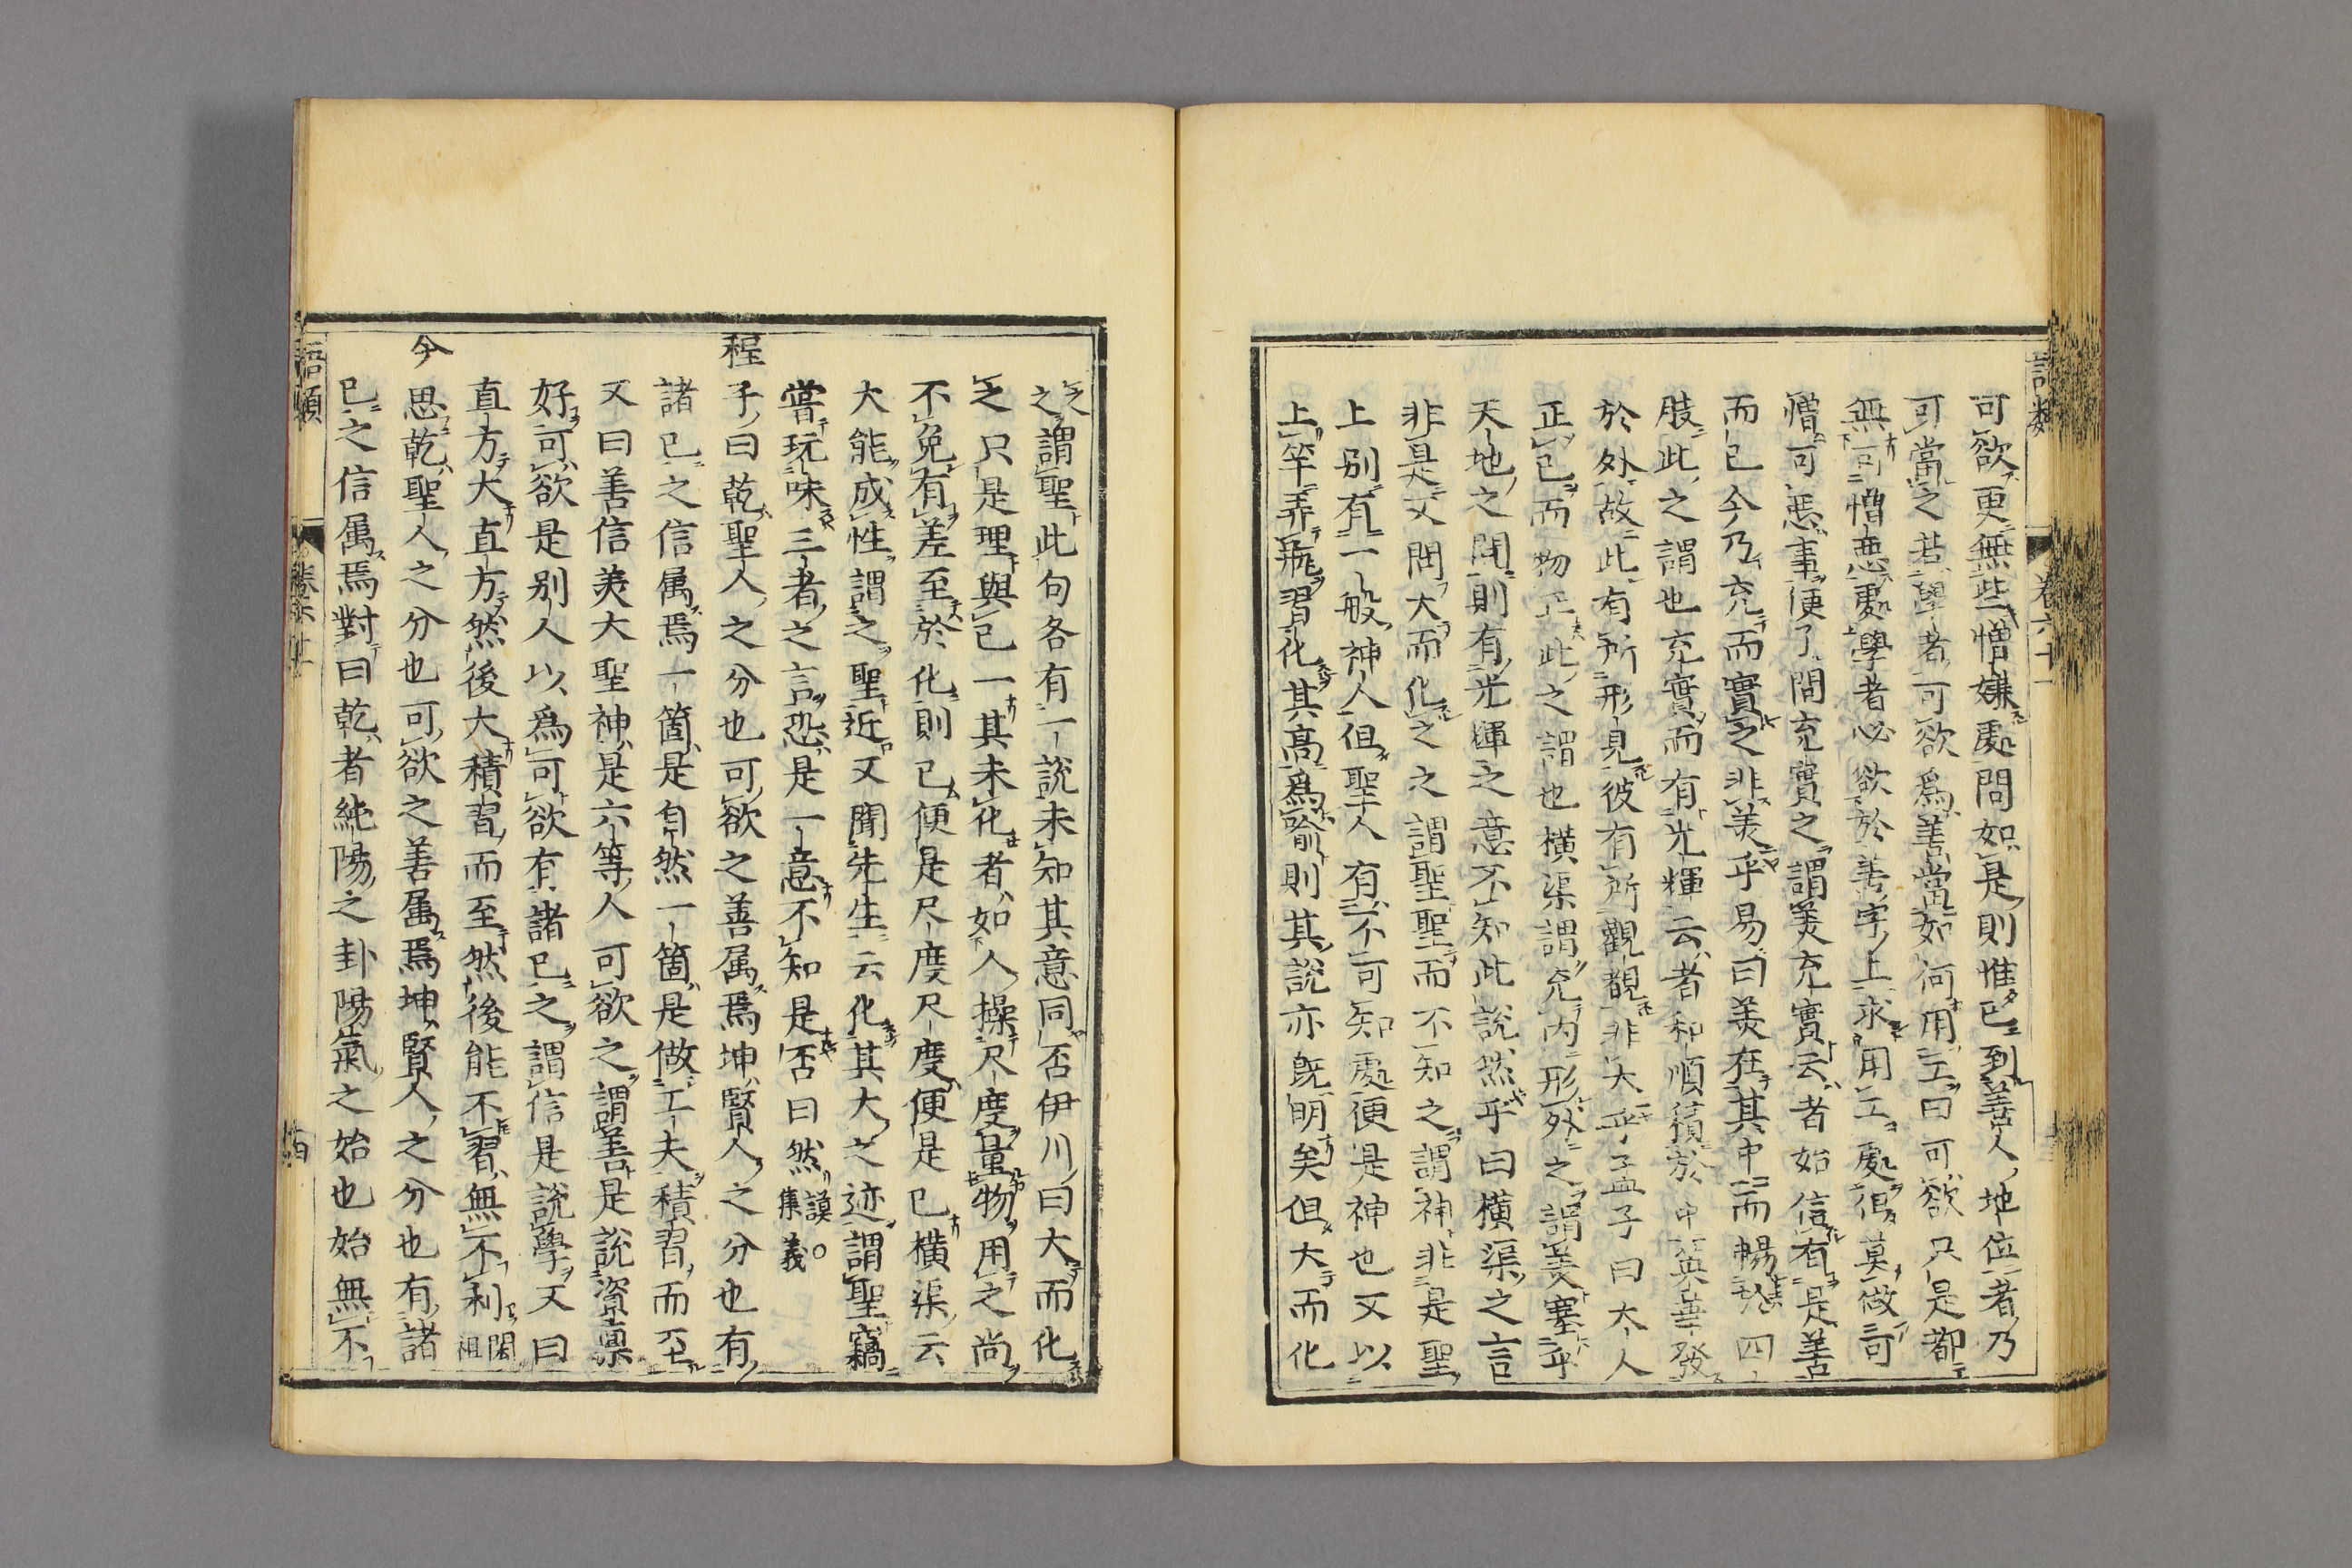 可欲更無些憎嫌處問如是則惟已到善人地位者乃
可當之若學者可欲爲善當如何用工曰可欲只是都
無可憎惡處學者必欲於善字上求用工處但莫做可
憎可惡事便了問充實之謂美充實云者始信有是善
而已今乃充而實之非美乎易曰美在其中而暢於四
肢此之謂也充實而有光輝云者和順積於中英華發
於外故此有所形見彼有所觀覩非大乎孟子曰大人
正已而物正此之謂也橫渠謂充內形外之謂美塞乎
天地之間則有光輝之意不知此說然乎曰橫渠之言
非是又問大而化之之謂聖聖而不知之謂神非是聖
上別有一般神人但聖人有不可知處便是神也又以
上竿弄瓶習化其高爲喻則其說亦旣明矣但大而化
之之謂聖此句各有一說未知其意同否伊川曰大而化
之只是理與已一其未化者如人操尺度量物用之尚
不免有差至於化則已便是尺度尺度便是已橫渠云
大能成性謂之聖近又聞先生云化其大之迹謂聖竊
嘗玩味三者之言恐是一意不知是否曰然謨○集義
程子曰乾聖人之分也可欲之善属焉坤賢人之分也有
諸已之信属焉一箇是自然一箇是做工夫積習而至
又曰善信美大聖神是六等人可欲之謂善是說資稟
好可欲是別人以爲可欲有諸已之謂信是說學又曰
直方大直方然後大積習而至然後能不習無不利閎祖
今思乾聖人之分也可欲之善属焉坤賢人之分也有諸
已之信属焉對曰乾者純陽之卦陽氣之始也始無不
語類
卷六十一